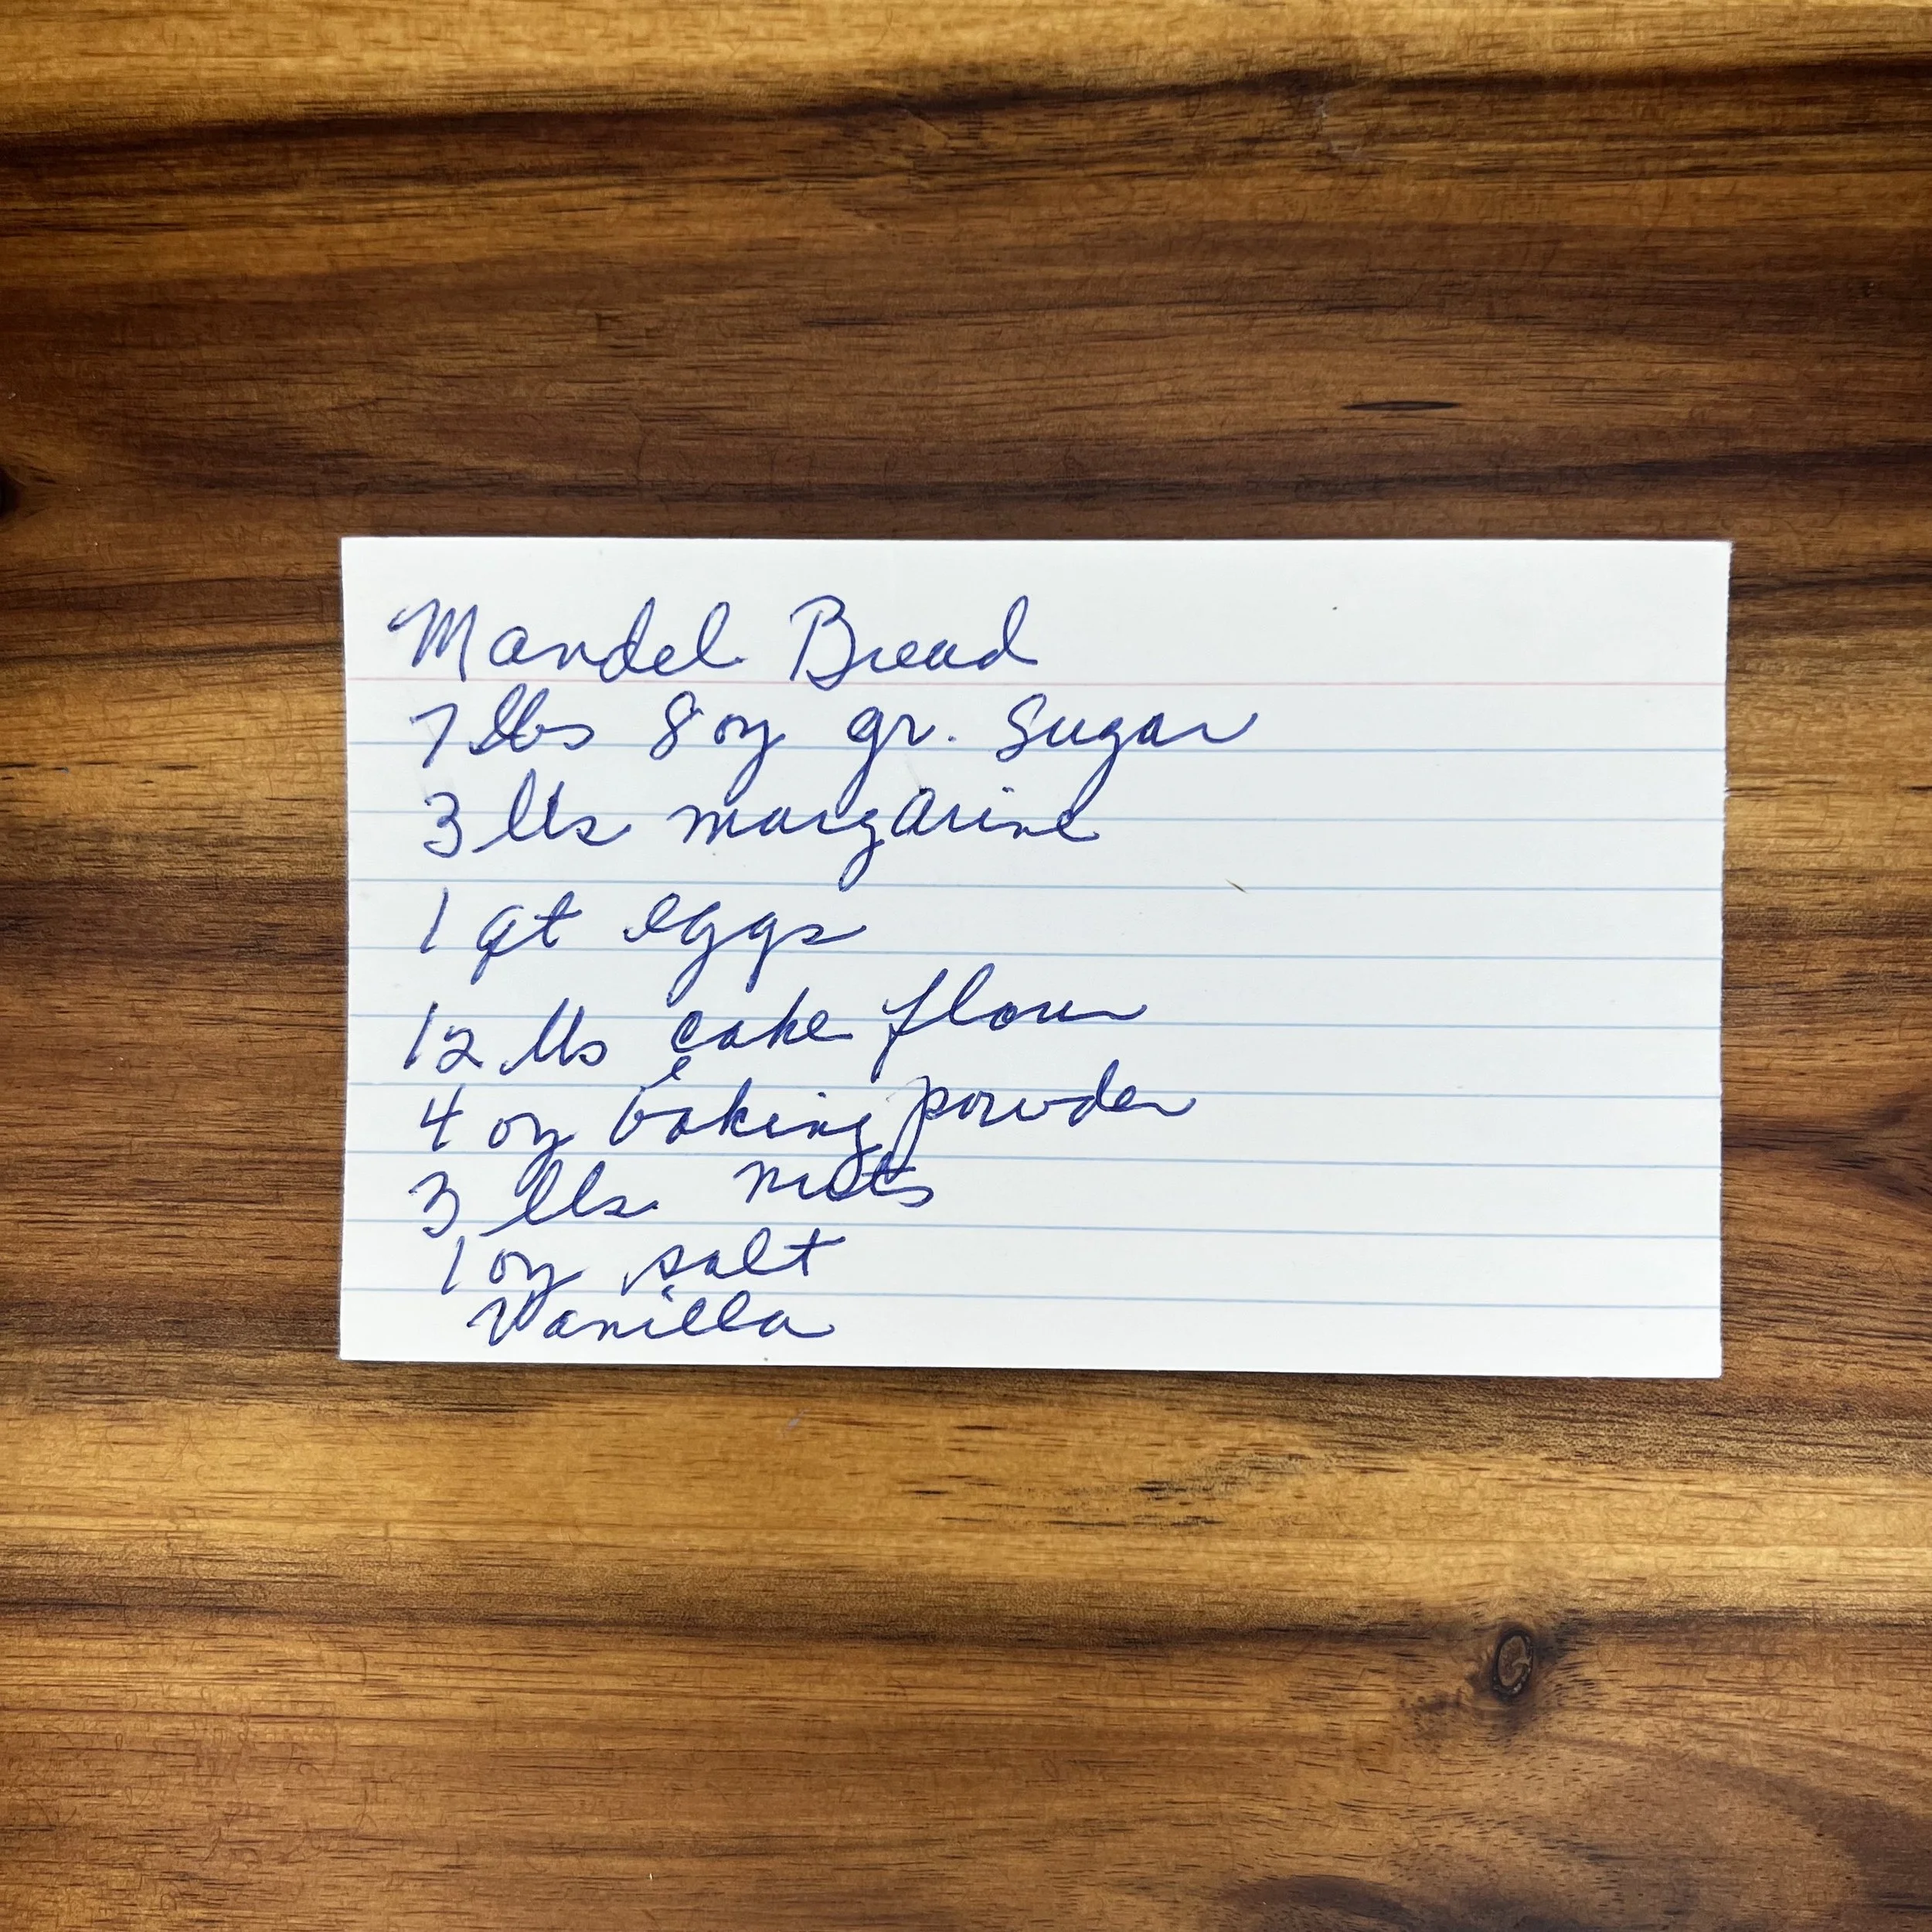 Mandel Bread
7 lbs 8 oz gr. Sugar
3 lbs margarine
1 qt eggs
12 lbs cake flour
4 oz baking powder
3 lbs nuts
1 oz salt
Vanilla